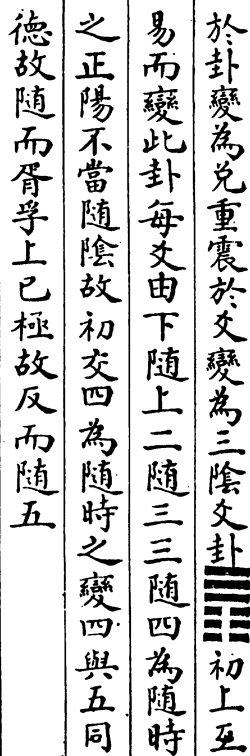 於卦變為兌重震於爻變為三陰爻卦䷋初上互
易而變此卦每爻由下随上二随三三随四為随時
之正陽不當随陰故初交四為随時之變四與五同
德故随而胥孚上已極故反而随五